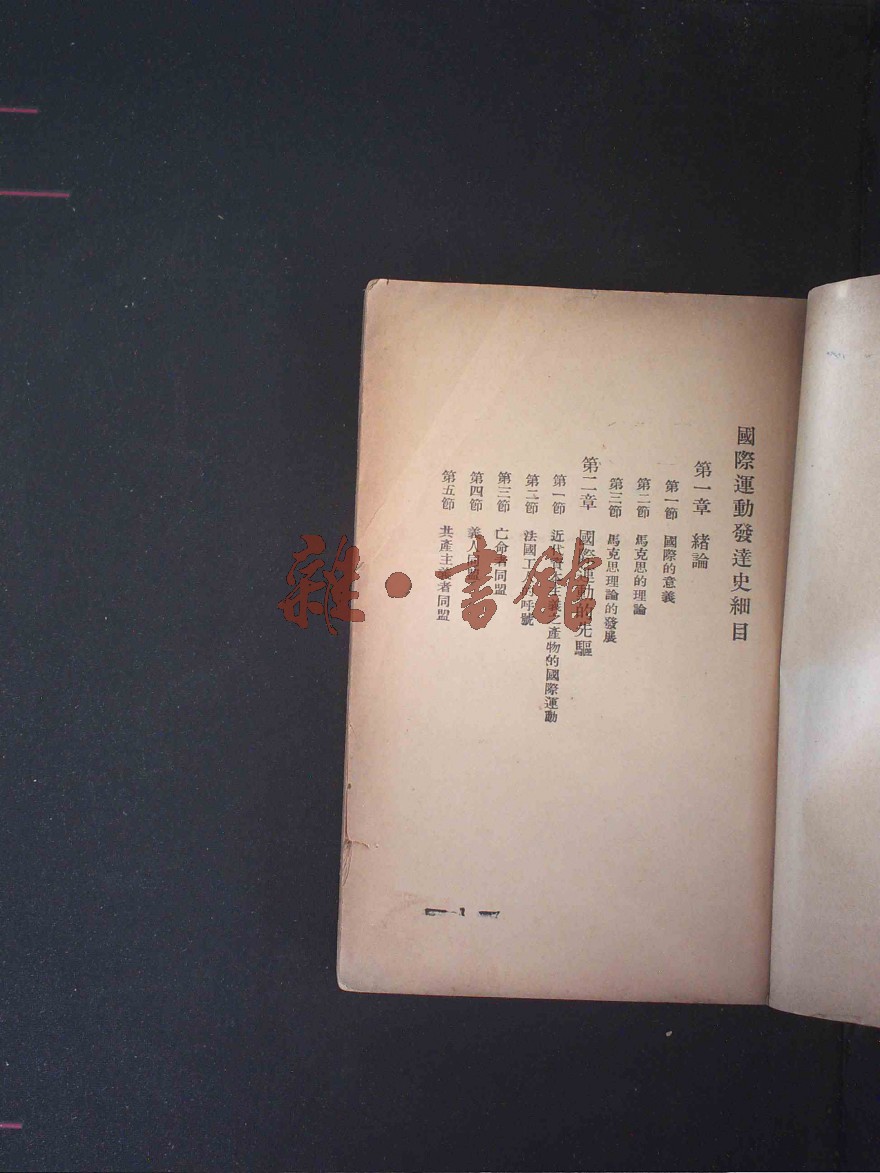 國際運動發達史細目
第一章 緒論
第一節 國際的意義
第二節 馬克思的理論
第三節 馬克思理論的發展
第二章 國際運動的先驅
第一節 近代資本主義之產物的國際運動
第二節 法國工人的呼號
第三節 亡命者同盟
第四節 義人同盟
第五節 共產主義者同盟
1
雜·書館